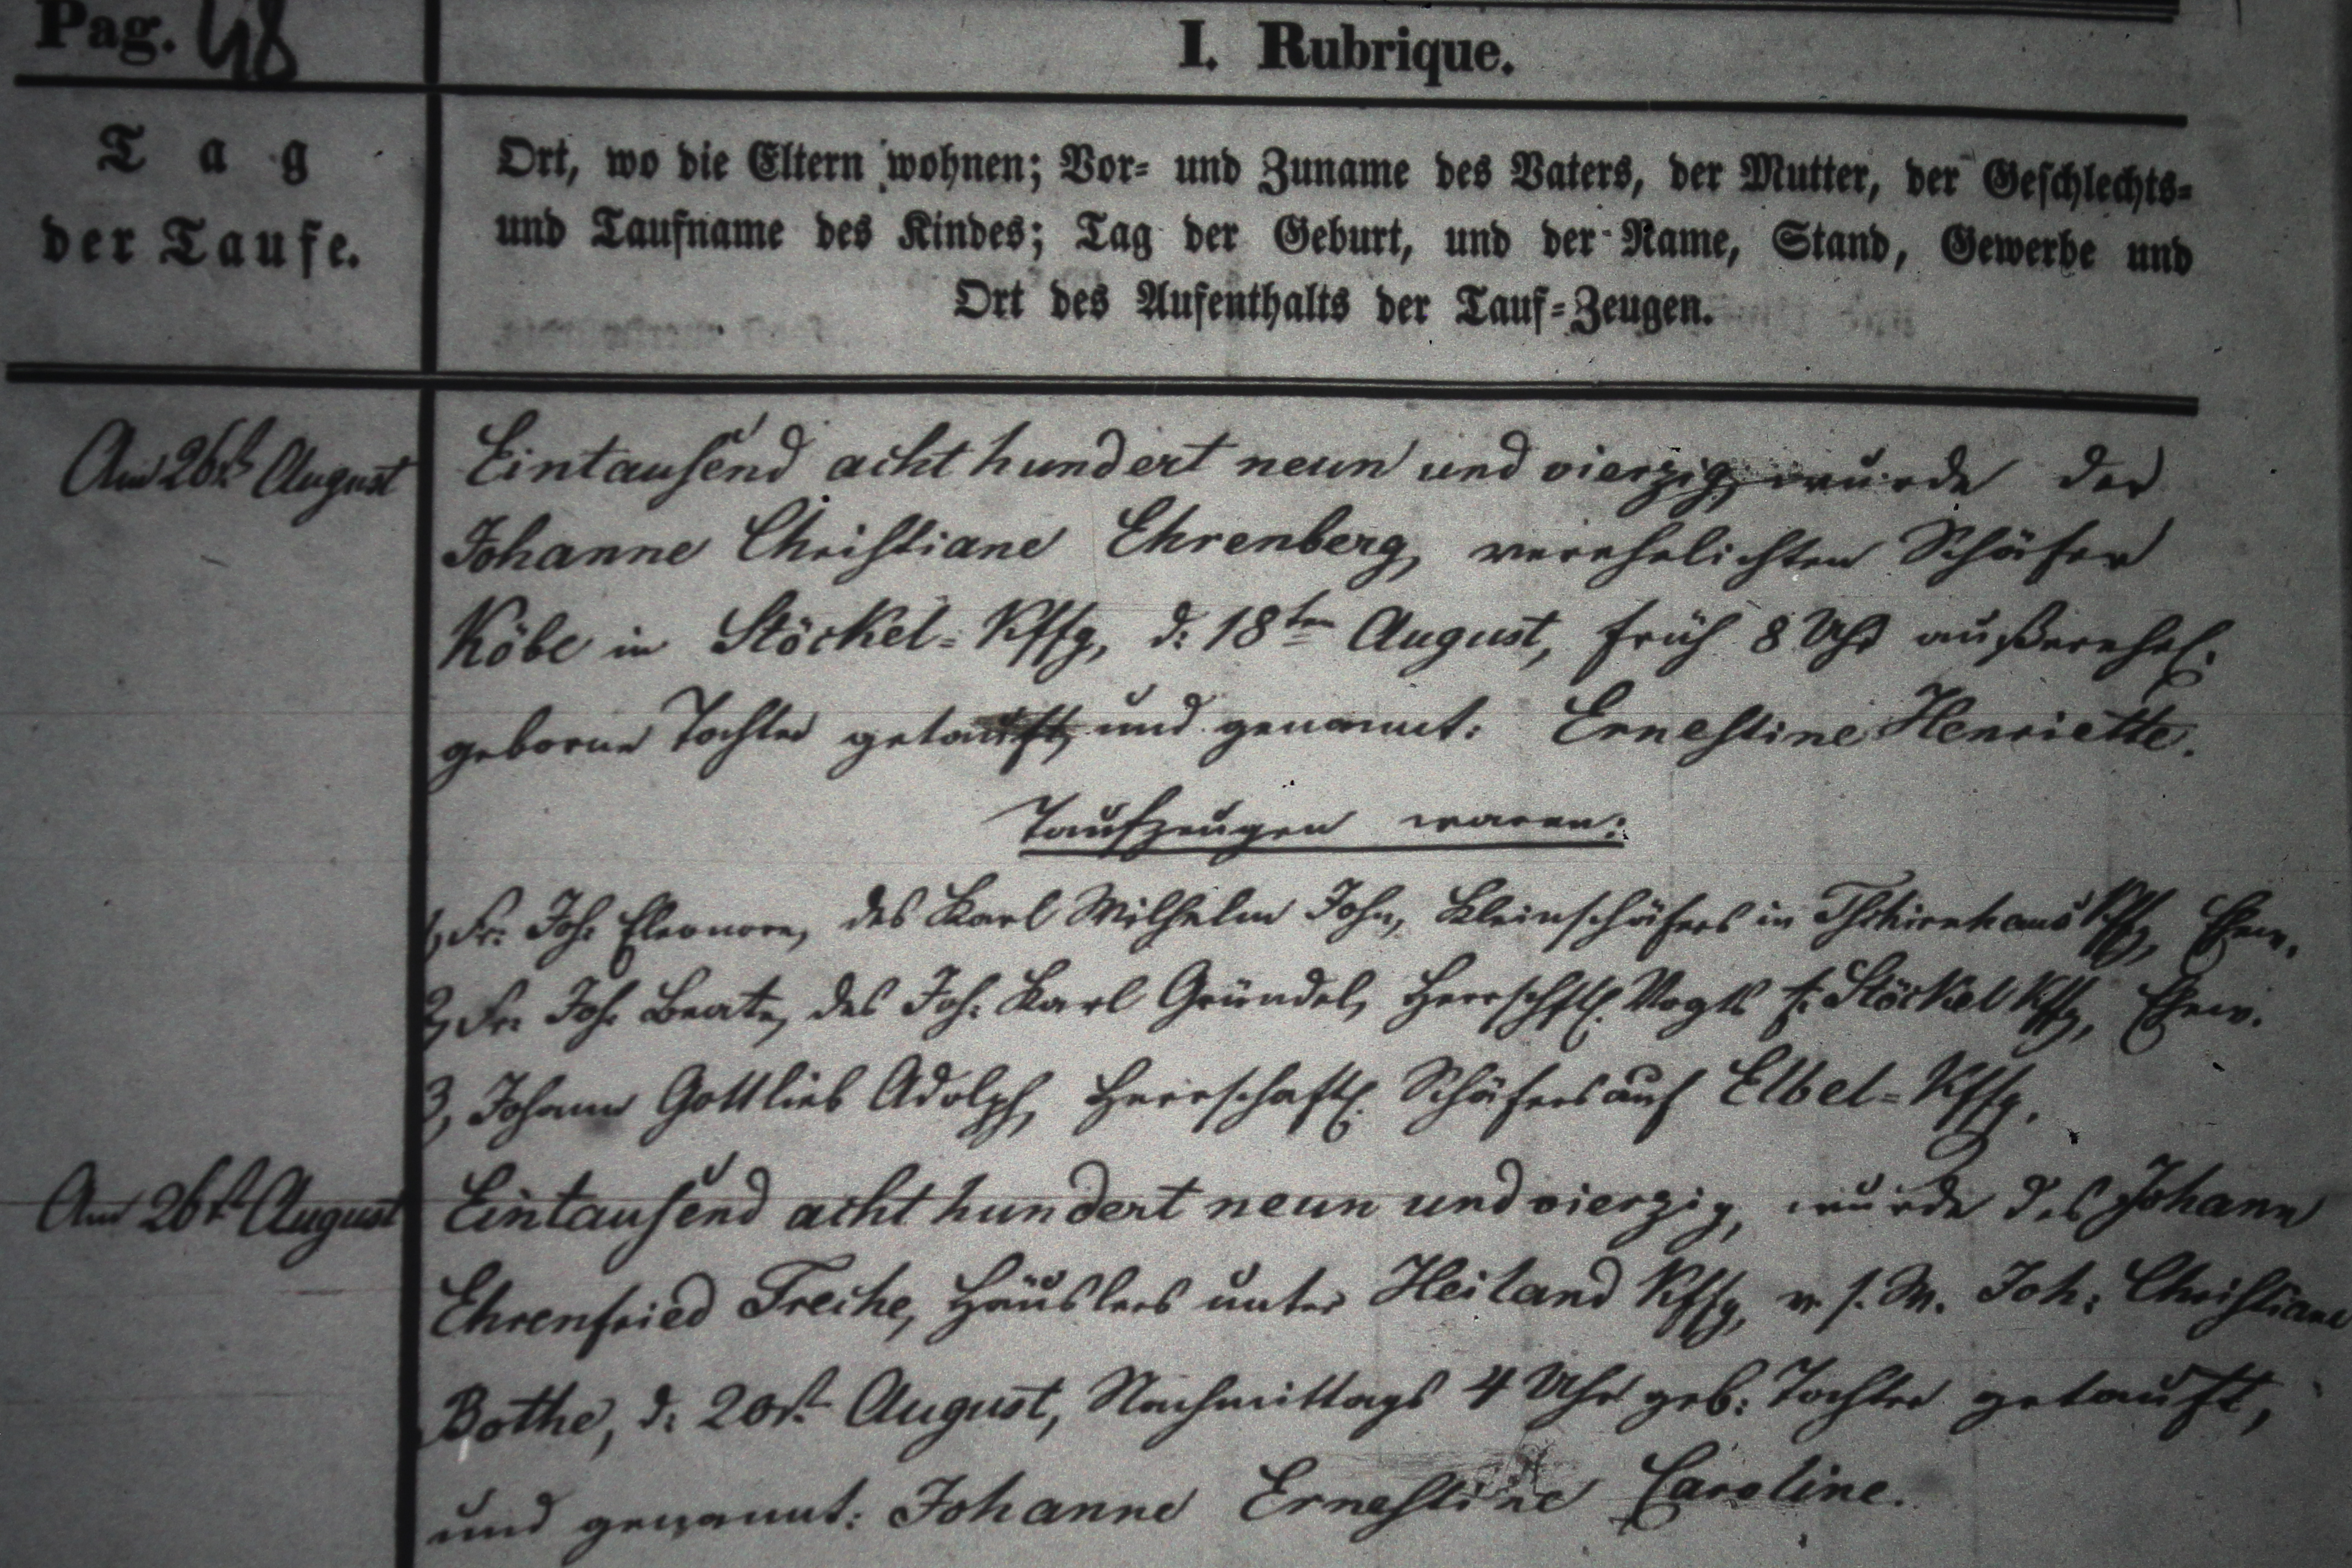 Pag. 48
I. Rubrique.
Tag
der Taufe.
Ort, wo die Eltern wohnen; Vor- und Zuname des Vaters, der Mutter, der Geschlechts-
und Taufname des Kindes; Tag der Geburt, und der Name, Stand, Gewerbe und
Ort des Aufenthalts der Tauf-Zeugen.
Am 26st August
Eintausend acht hundert neun und vierzig, wurde der
Johanne Christiane Ehrenberg, verehelichten Schäfer
Köbe in Stöckel-Kffg, d: 18ten August, früh 8 Uhr außerehel.
geborne Tochter getauft, und genannt: Ernestine Henriette.
Taufzeugen waren:
1, Fr: Joh: Eleonore, des Karl Wilhelm John, Kleinschäfers in Tschirnhaus Kffg, Ehew.
2, Fr: Joh: Beate, des Joh: Karl Gründel, Herrschftl. Vogts z. Stöckel Kffg, Ehew.
3, Johann Gottlieb Adolph, Herrschaftl. Schäfers auf Elbel-Kffg.
Am 26st August
Eintausend acht hundert neun und vierzig, wurde des Johann
Ehrenfried Treche, Häuslers unter Heiland Kffg, v. s. W. Joh: Christiane
Bothe, d: 20st August, Nachmittags 4 Uhr geb: Tochter getauft,
und genannt: Johanne Ernestine Caroline.